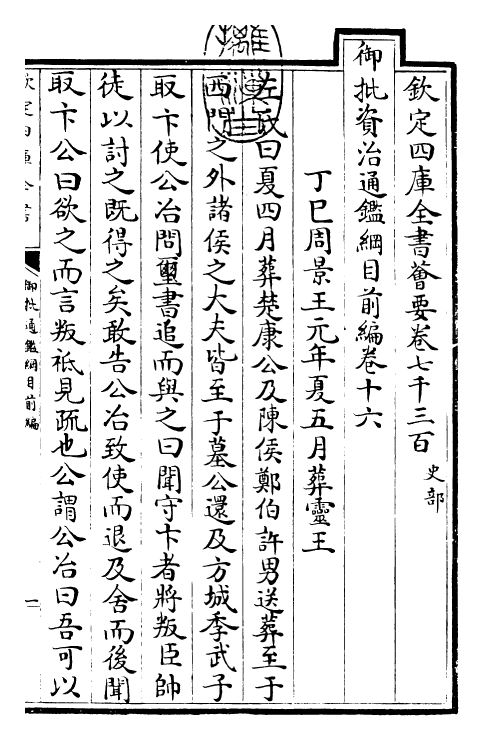 欽定四庫全書薈要卷七千三百 史部
御批資治通鑑綱目前編卷十六
丁巳周景王元年夏五月葬靈王
左氏曰夏四月葬楚康公及陳侯鄭伯許男送葬至于
西門之外諸侯之大夫皆至于墓公還及方城季武子
取卞使公冶問璽書追而與之曰聞守卞者將叛臣帥
徒以討之既得之矣敢告公冶致使而退及舍而後聞
取卞公曰欲之而言叛祗見疏也公謂公冶曰吾可以
御批通鑑綱目前編
一